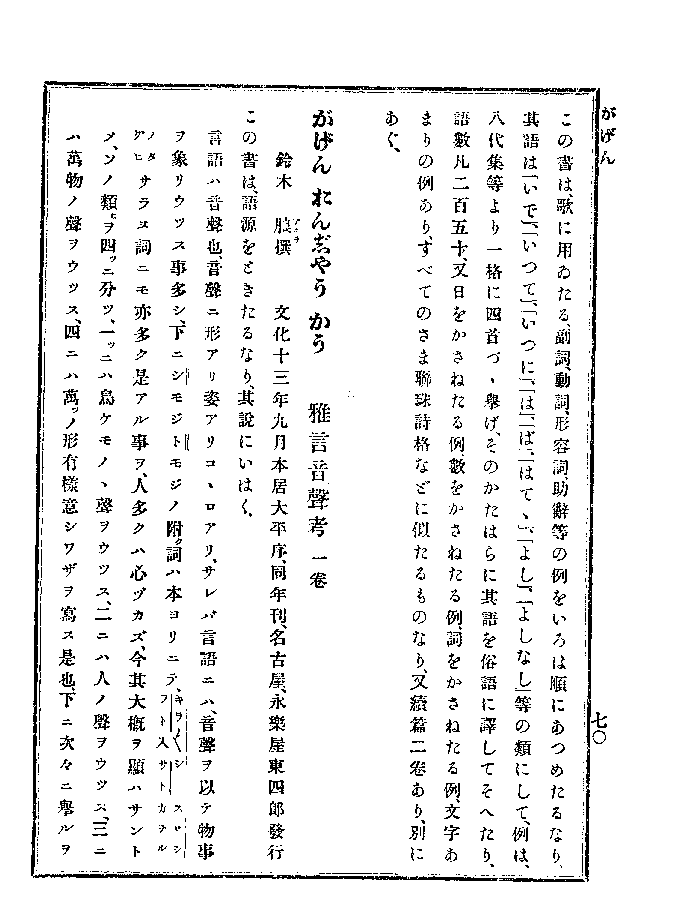 がげん
七〇
この書は、歌に用ゐたる、副詞、動詞、形容詞、助辭等の例をいろは順にあつめたるなり、
其語は「いで」、「いつて」、「いつに」、「は」、「ば」、「はて、」、「よし」、「よしなし」等の類にして、例は、
八代集等より一格に四首づゝ擧げ、そのかたはらに其語を俗語に譯してそへたり、
語數凡二百五十、又日をかさねたる例、數をかさねたる例、詞をかさねたる例、文字あ
まりの例あり、すべてのさま聯珠詩格などに似たるものなり、又續篇二卷あり、別に
あぐ、
がげん おんじやう かう 雅言音聲考 一卷
鈴木 朖撰 文化十三年九月本居大平序、同年刊、名古屋、永樂屋東四郎發行
この書は、語源をときたるなり、其說にいはく、
言語ハ音聲也、音聲ニ形アリ姿アリコヽロアリ、サレバ言語ニハ、音聲ヲ以テ物事
ヲ象リウツス事多シ、下ニシモジトモジノ附ク詞ハ本ヨリニテ、
サラヌ詞ニモ亦多ク是アル事ヲ、人多クハ心ヅカズ、今其大概ヲ顯ハサント
メ、ソノ類ヒヲ四ッニ分ツ、一ッニハ鳥ケモノヽ聲ヲウツス、二ニハ人ノ聲ヲウツス、三ニ
ハ萬物ノ聲ヲウツス、四ニハ萬ヅノ形有樣意シワザヲ寫ス是也、下ニ次々ニ擧ルヲ